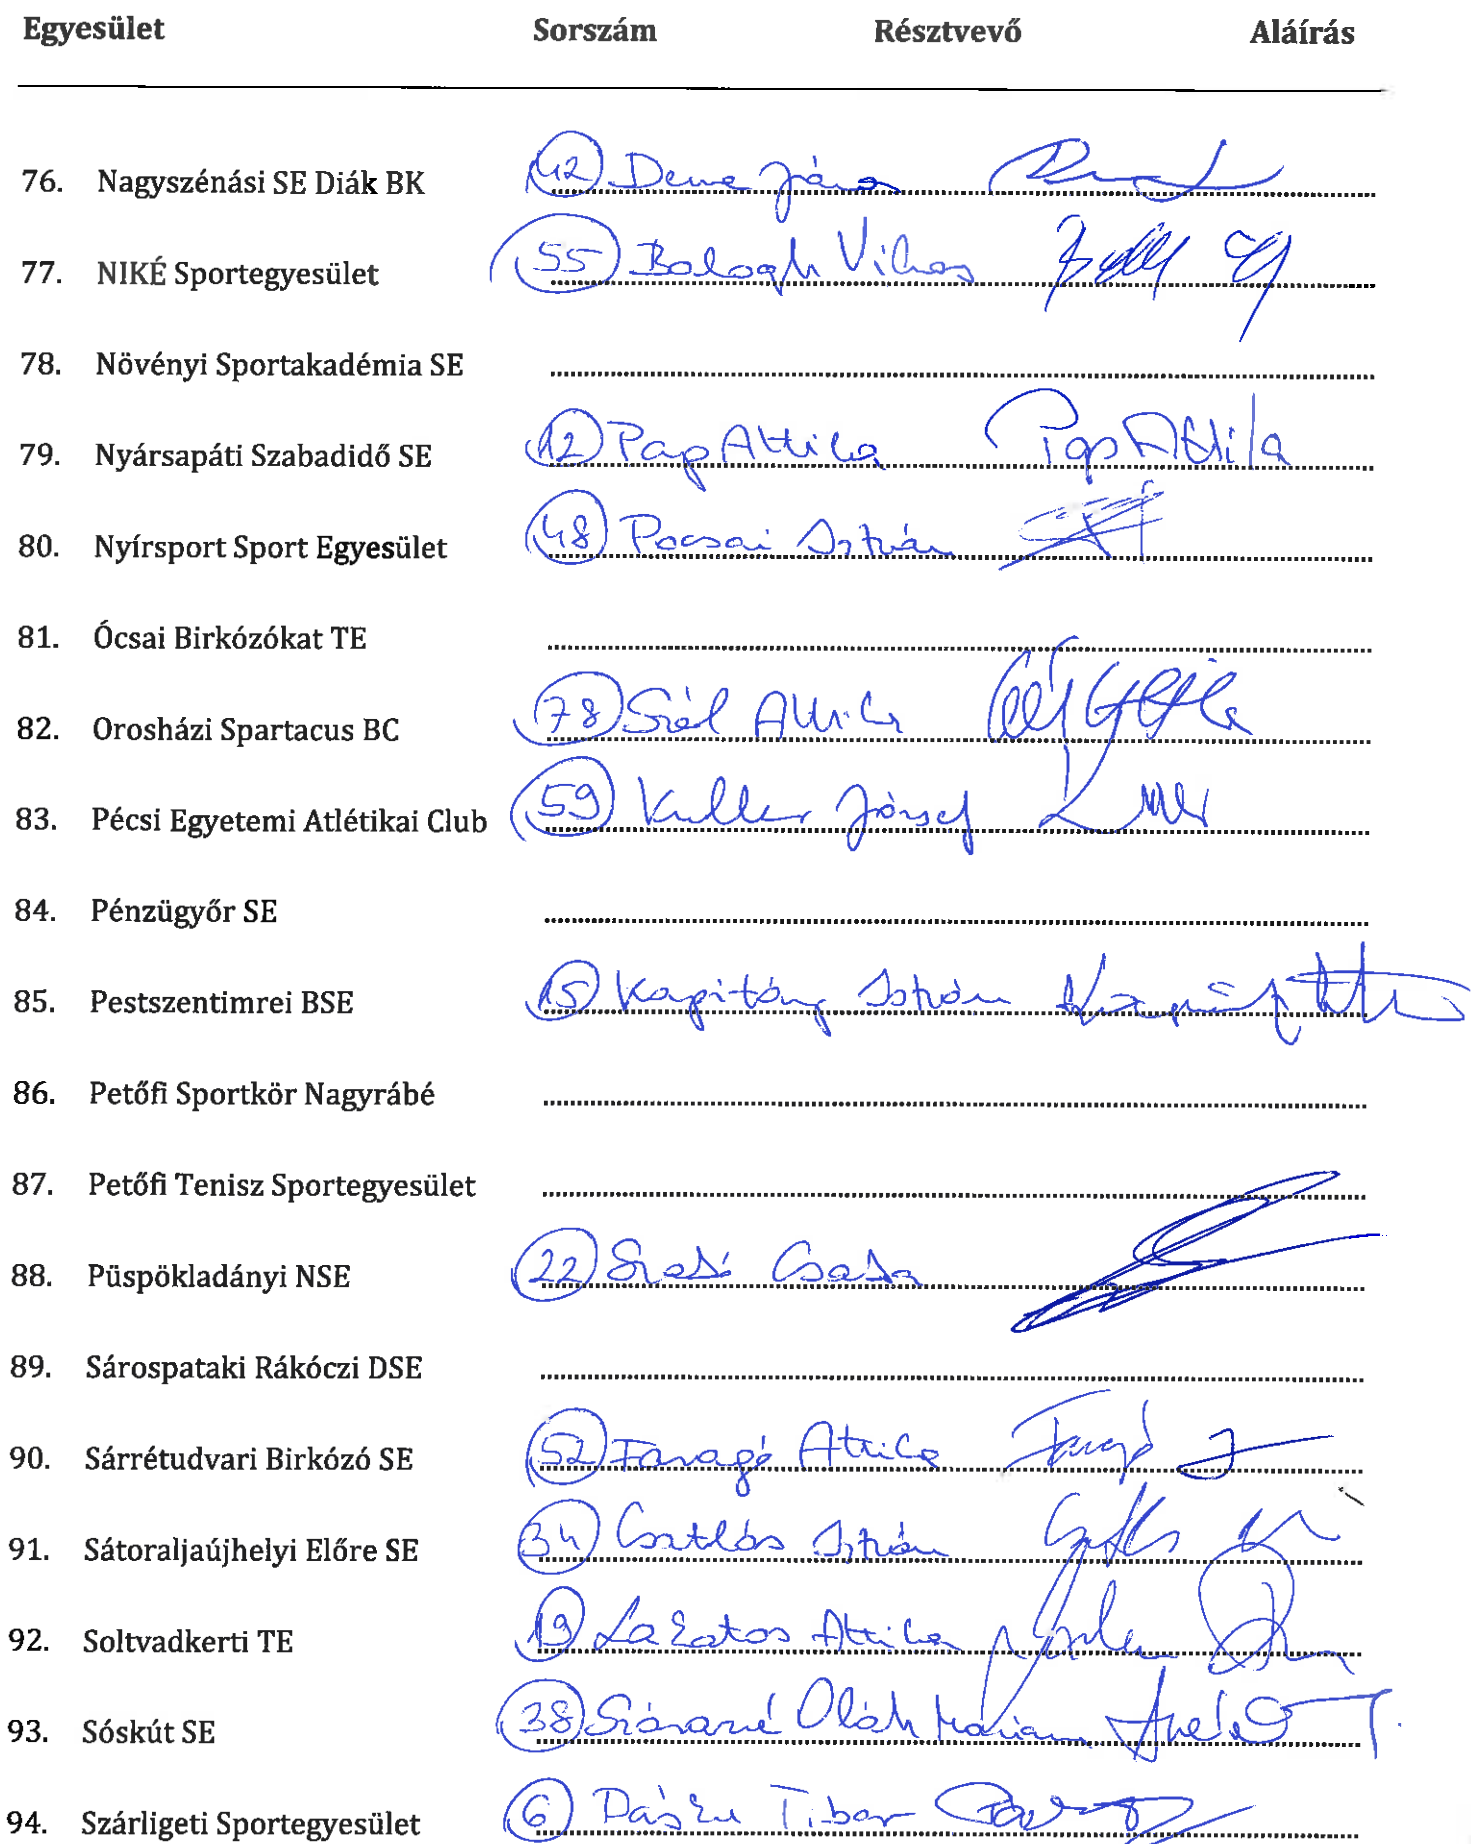 Egyesület Sorszám Résztvevő Aláírás
76. Nagyszénási SE Diák BK 42 János
77. NIKÉ Sportegyesület 55 Balogh Vilmos
78. Növényi Sportakadémia SE
79. Nyársapáti Szabadidő SE 12 Pap Attila Pap Attila
80. Nyírsport Sport Egyesület 48 Pocsai István
81. Ócsai Birkózókat TE
82. Orosházi Spartacus BC 78 Szél Attila
83. Pécsi Egyetemi Atlétikai Club 59 Kuller József
84. Pénzügyőr SE
85. Pestszentimrei BSE 15 Kapitány István
86. Petőfi Sportkör Nagyrábé
87. Petőfi Tenisz Sportegyesület
88. Püspökladányi NSE 22 Szabó Csaba
89. Sárospataki Rákóczi DSE
90. Sárrétudvari Birkózó SE 52 Faragó Attila Faragó
91. Sátoraljaújhelyi Előre SE 34 István
92. Soltvadkerti TE 19 Lakatos Attila
93. Sóskút SE 38 Oláh Mariann
94. Szárligeti Sportegyesület 6 Tibor